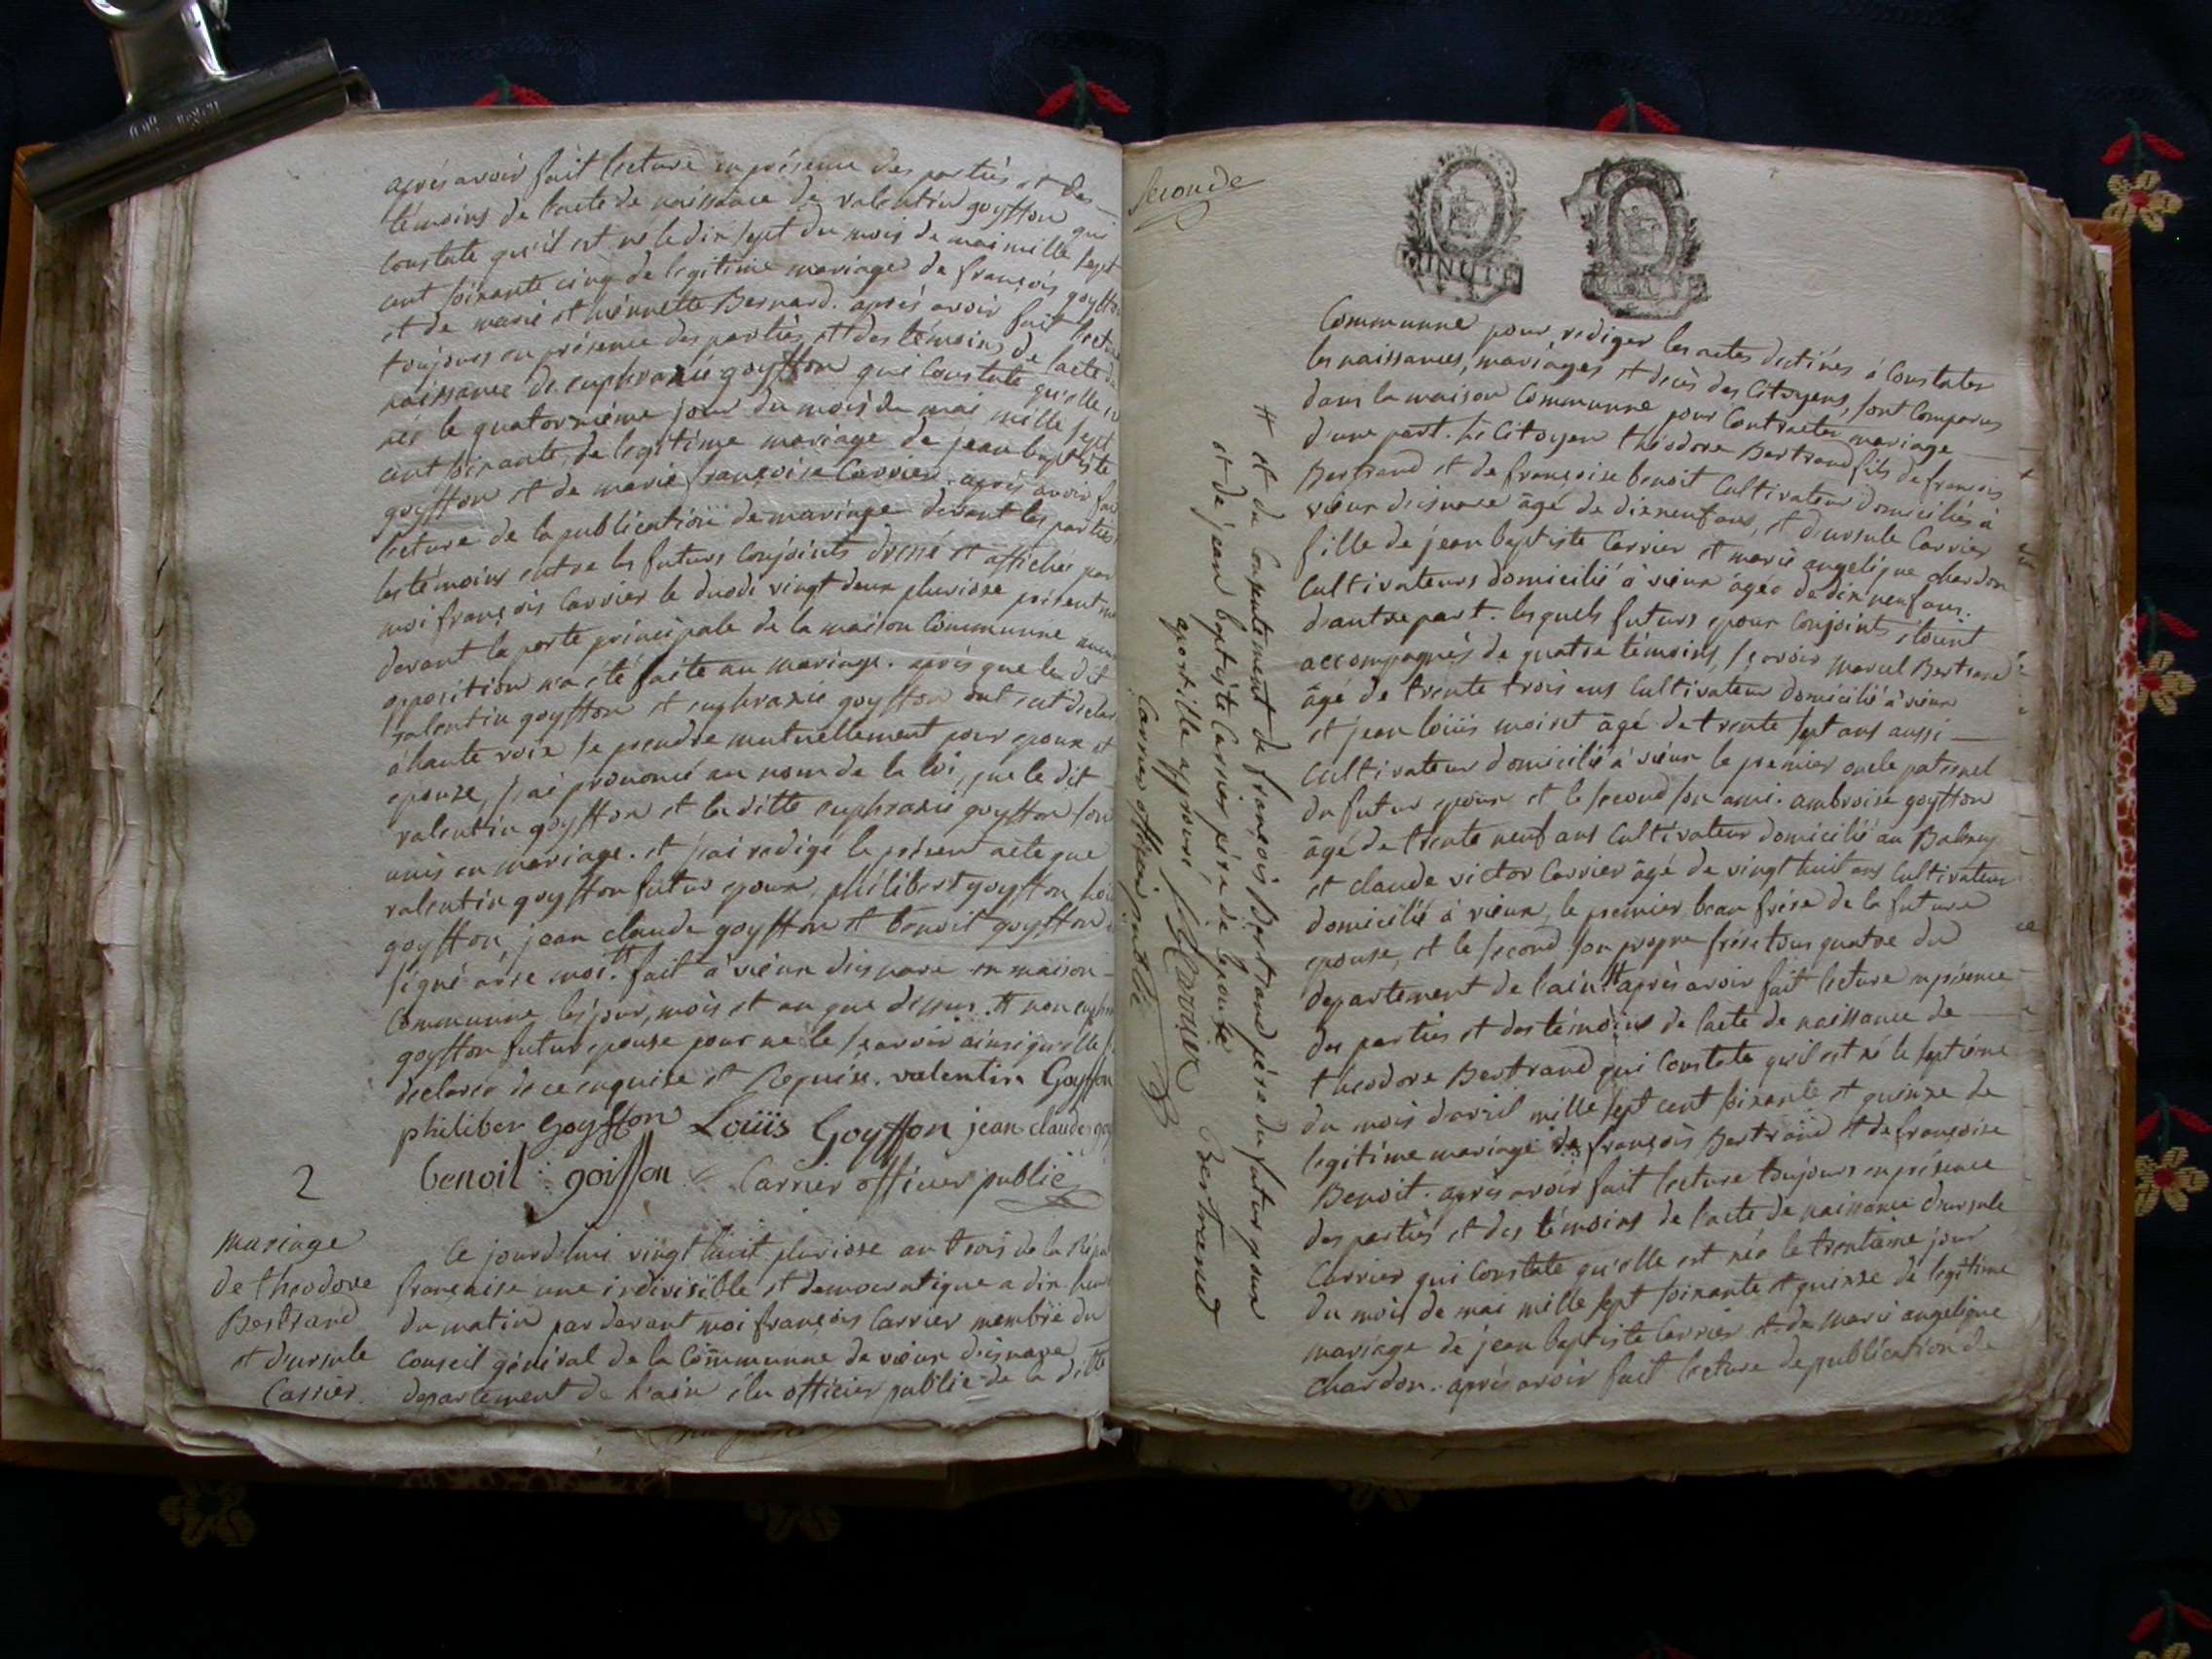 après avoir fait lecture en présence des parties et des
témoins de l'acte de naissance de valentin goyffon qui
Constate qu'il est né le dix sept du mois de mai mille sept
cent soixante cinq de legitime mariage de françois goyffon
et de marie ethiennette Bernard. après avoir fait lecture
toujours en présence des parties et des témoins de l'acte de
naissance de euphraxie goyffon qui Constate qu'elle est
née le quatorzième jour du mois de mai mille sept
cent soixante, de legitime mariage de jean baptiste
goyffon et de marie françoise Carrier. après avoir fait
lecture de la publication de mariage devant les parties
les témoins entre les futurs Conjoints dressé et affichée par
moi françois Carrier le duodi vingt deux pluviose présent mois
devant la porte principale de la maison Communne aucune
opposition n'a été faite au mariage. après que le dit
valentin goyffon et euphraxie goyffon ont eut declaré
à haute voix se prendre mutuellement pour epoux et
epouze, j'ai prononcé au nom de la loi, que le dit
valentin goyffon et la ditte euphraxie goyffon sont
unis en mariage. et j'ai redigé le présent acte que
valentin goyffon futur epoux, philibert goyffon, loüis
goyffon, jean claude goyffon et benoit goyffon
signé avec moi. # fait à vieux disnave en maison
Communne les jour, mois et an que dessus. # non euphraxie
goyffon future epouse pour ne le sçavoir ainsi qu'elle
declaréé de ce enquise et Requise. valentin Goyffon
philiber goyffon Loüis Goyffon jean claude goy
benoit goiffon Carrier officier public
2
mariage
de theodore
Bertrand
et d'ursule
Carrier.
Ce jourd'hui vingt huit pluviose an trois de la Répu
française une indivisible et democratique a dix heures
du matin par devant moi françois Carrier membre du
Conseil général de la Communne de vieux d'isnave
departement de l'ain élu officier public de la ditte
Seconde
# et du Consentement de françois Bertrand père du futur epoux
et de jean baptiste Carrier père de l'épouse
apostille approuvé f. Carrier Bertrand
Carrier officier public
UNUTE
Communne pour rediger les actes destinés à Constater
les naissances, mariages et decès des Citoyens, sont Comparus
dans la maison Communne pour Contracter mariage
d'une part. le Citoyen théodore Bertrand fils de françois
Bertrand et de françoise benoit Cultivateur domiciliés à
vieux disnave âgé de dixneuf ans, et d'ursule Carrier
fille de jean baptiste Carrier et marie angelique chardon
Cultivateurs domicilié à vieux âgée de dix neuf ans.
d'autre part. lesquels futurs epoux Conjoints etoient
accompagnés de quatre témoins, sçavoir marcel Bertrand
âgé de trente trois ans Cultivateur domicilié à vieux
et jean loüis moiret âgé de trente sept ans aussi
Cultivateur domicilié à vieux le premier oncle paternel
du futur epoux et le second son ami. ambroise goyffon
âgé de trente neuf ans Cultivateur domicilié au
et claude victor Carrier âgé de vingt huit ans Cultivateur
domicilié à vieux, le premier beau frère de la future
epouse, et le second son propre frère tous quatre du
departement de l'ain # après avoir fait lecture en présence
des parties et des témoins de l'acte de naissance de
theodore Bertrand qui Constate qu'il est né le septième
du mois d'avril mille sept cent soixante et quinze de
legitime mariage de françois Bertrand et de françoise
Benoit. après avoir fait lecture toujours en présence
des parties et des témoins de l'acte de naissance d'ursule
Carrier qui Constate qu'elle est née le trentième jour
du mois de mai mille sept soixante et quinze de legitime
mariage de jean baptiste Carrier et de marie angelique
chardon. après avoir fait lecture de publication de